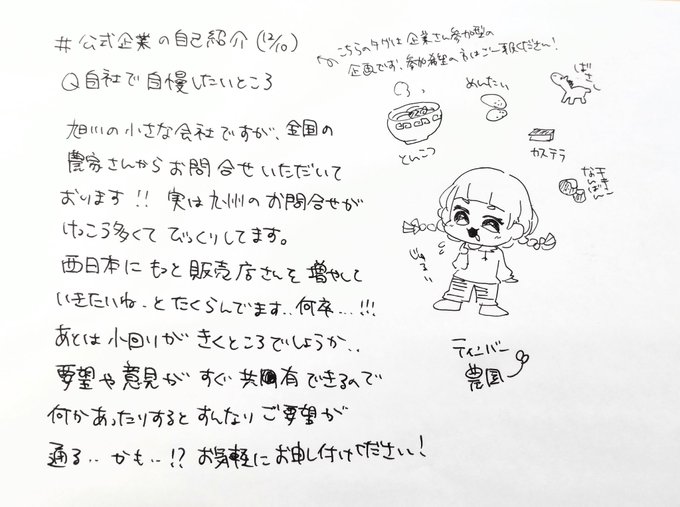 # 公式企業の自己紹介 (12/10)
こちらのタグは企業さん参加型の
企画です。参加希望の方はご一報ください!
Q 自社で自慢したいところ
旭川の小さな会社ですが、全国の
農家さんからお問合せいただいて
おります!! 実は九州のお問合せが
けっこう多くて びっくりしてます。
西日本に もっと販売店さんを増やして
いきたいね、とたくらんでます..何卒...!!!
あとは小回りが きくところでしょうか..
要望や意見が すぐ共有できるので
何かあったりするとすんなりご要望が
通る.. かも..!? お気軽にお申し付けください!
とんこつ
めんたい
ばさし
カステラ
チキン
なんばん
じゅるい
ティンバー
農園